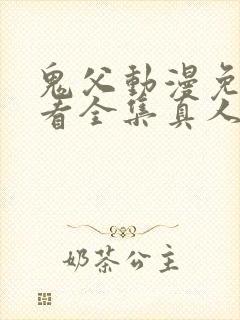 鬼父動漫免
看全集真人
奶茶公主